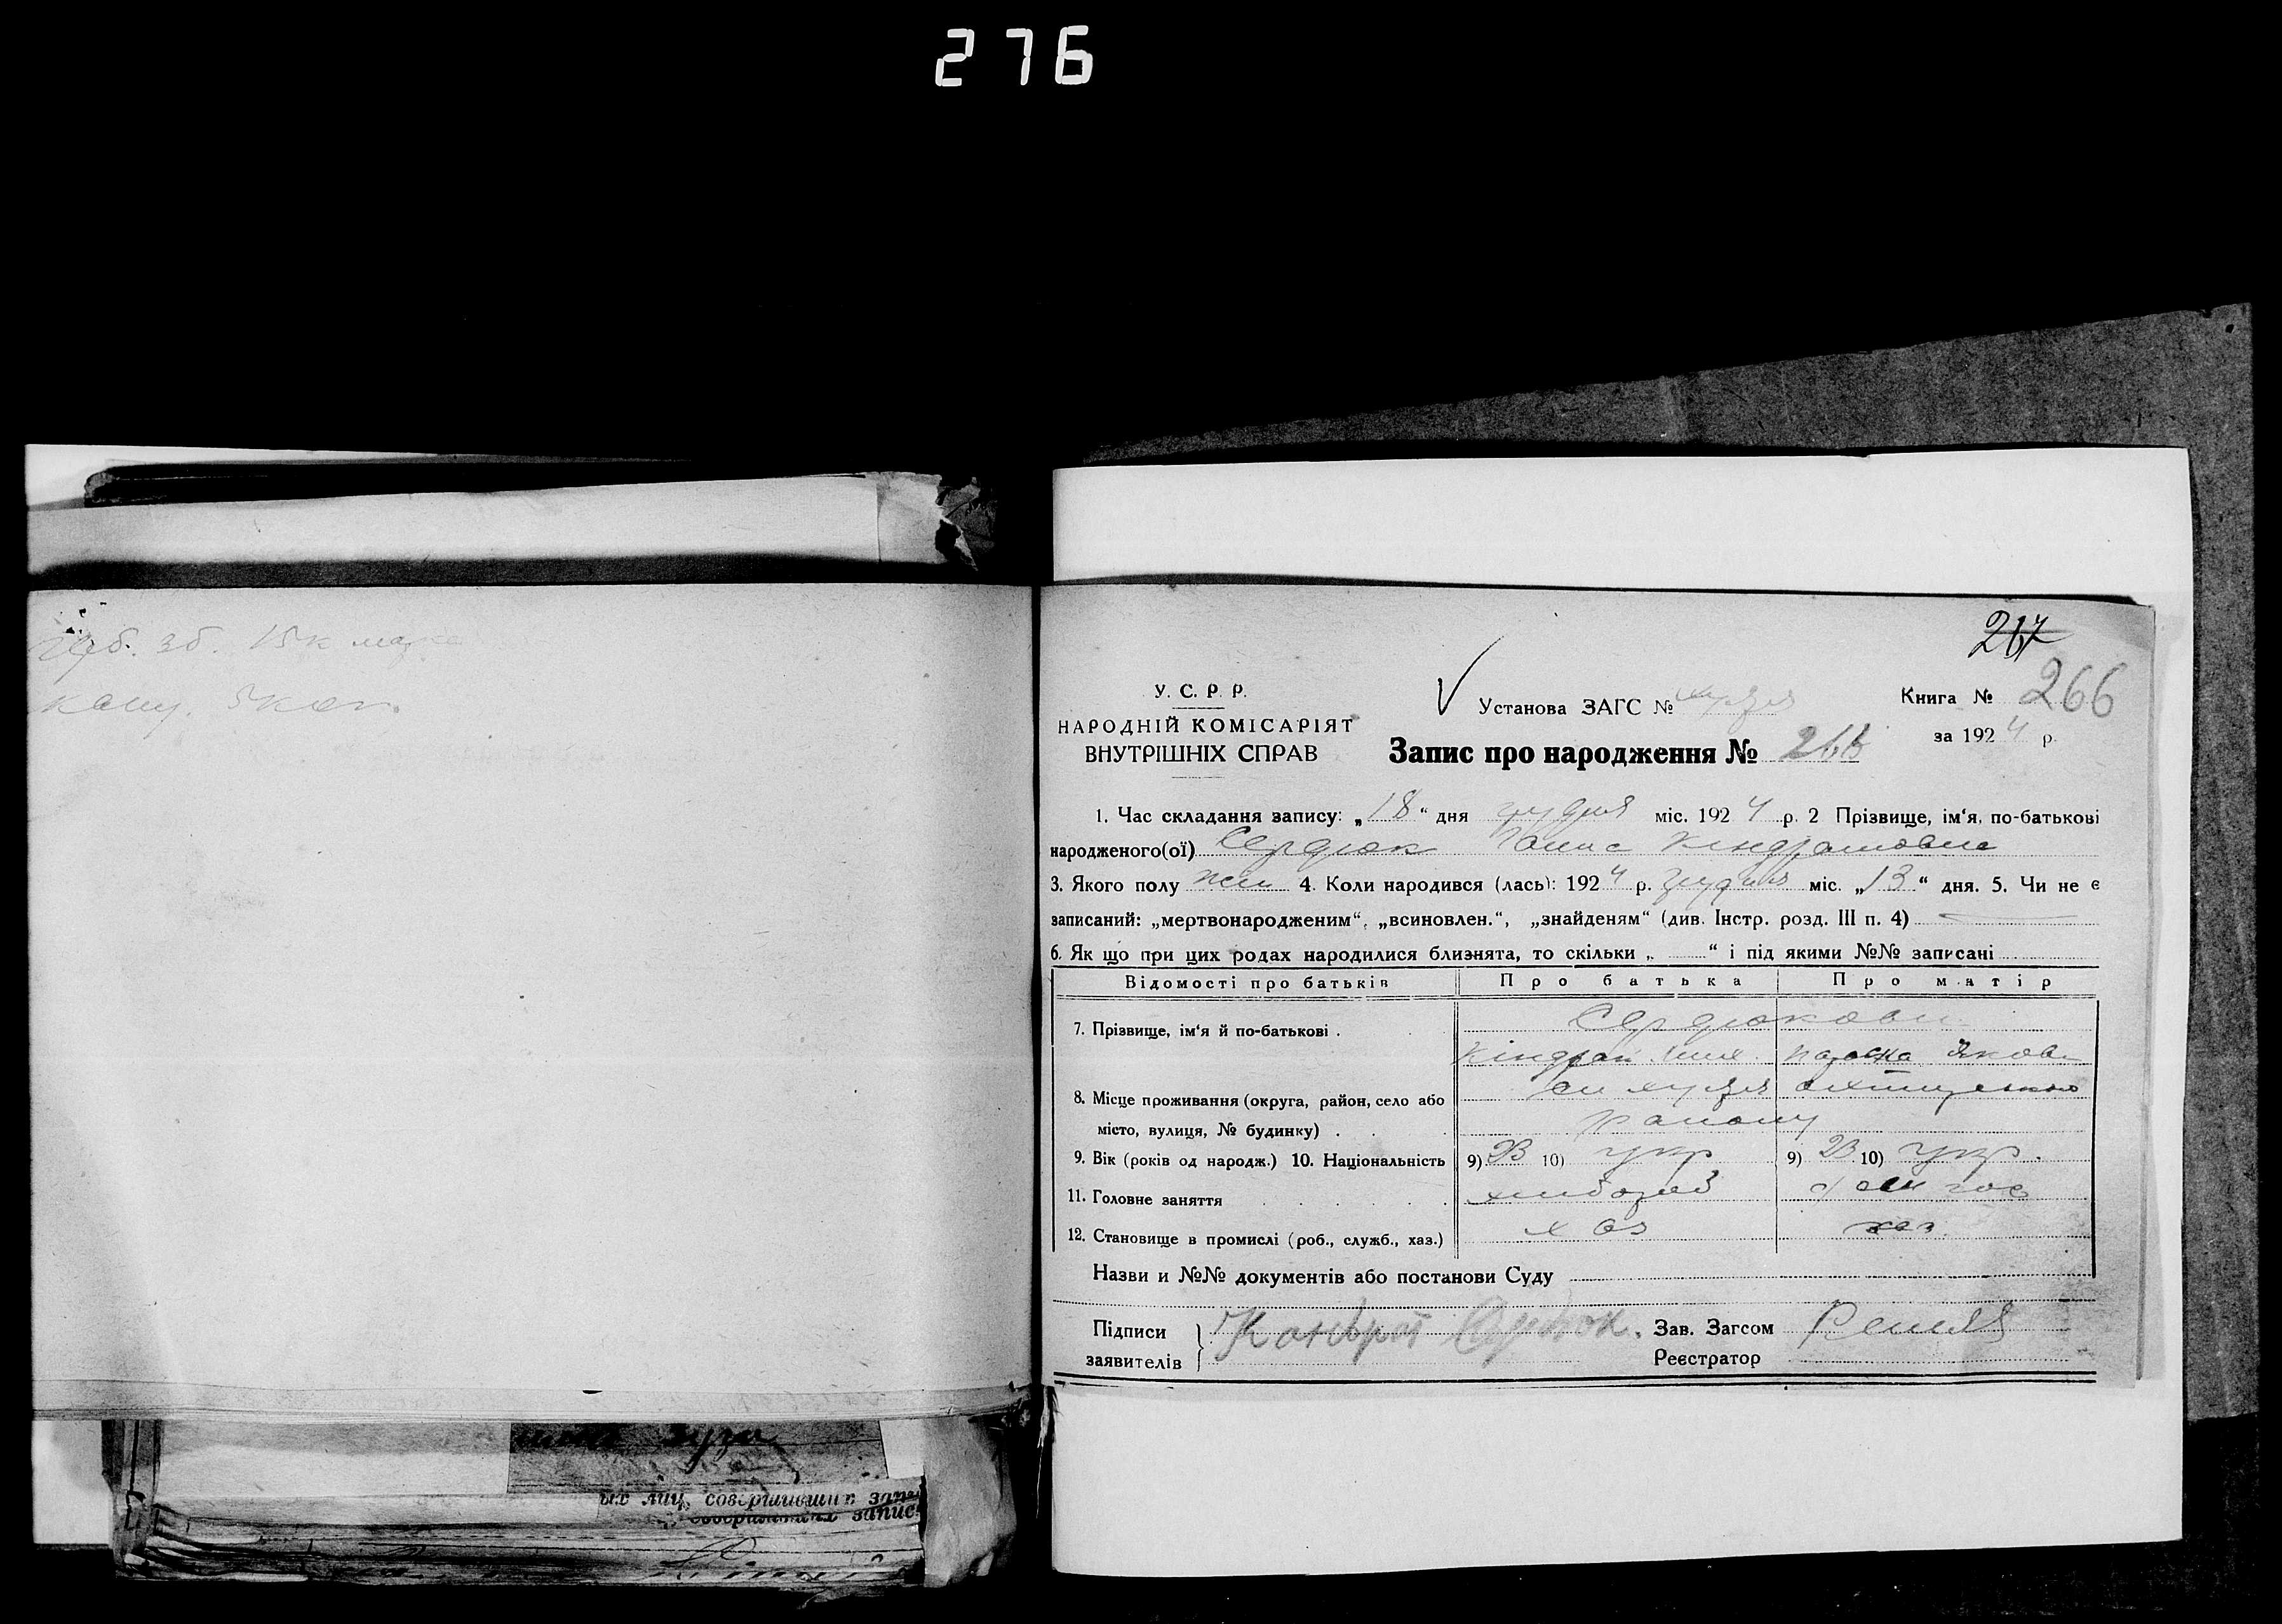 276
зб. 15к
5 коп.
267
266
У. С. Р. Р.
НАРОДНІЙ КОМІСАРІЯТ
ВНУТРІШНІХ СПРАВ
Установа ЗАГС №
Книга №
за 1924 р.
Запис про народження № 266
1. Час складання запису: „18“ дня грудня міс. 1924 р. 2 Прізвище, ім‘я, по-батькові
народженого(ої) Сердюк Ганна Кіндратовна
3. Якого полу жен 4. Коли народився (лась): 1924 р. грудня міс. „13“ дня. 5. Чи не є
записаний: „мертвонародженим“, „всиновлен.“, „знайденям“ (див. Інстр. розд. III п. 4)
6. Як що при цих родах народилися близнята, то скільки „ “ і під якими №№ записані
Відомості про батьків Про батька Про матір
7. Прізвище, ім‘я й по-батькові . Сердюкови
Кіндрат Яков
8. Місце проживання (округа, район, село або
місто, вулиця, № будинку) . району
9. Вік (років од народж.) 10. Національність 9) 23 10) укр 9) 23 10) укр.
11. Головне заняття хлібороб дом гос
12. Становище в промислі (роб., служб., хаз.) хаз хаз.
Назви и №№ документів або постанови Суду
Підписи
заявителів
Кондрат Сердюк. Зав. Загсом
Реєстратор
ых лиц, совершивших запис
совершивших запис